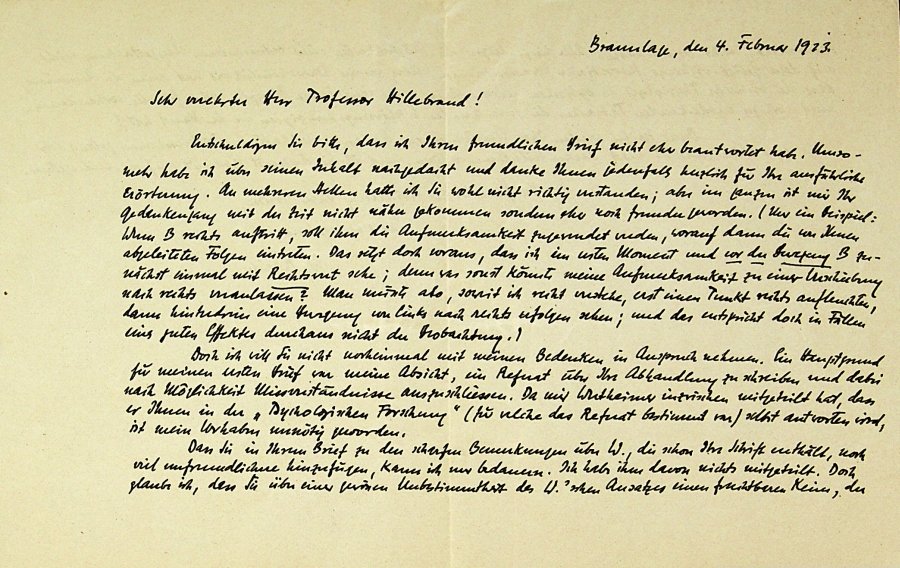 Braunlage, den 4. Februar 1923.
Sehr verehrter Herr Professor Hillebrand!
Entschuldigen Sie bitte, dass ich Ihren freundlichen Brief nicht eher beantwortet habe. Umso-
mehr habe ich über seinen Inhalt nachgedacht und danke Ihnen jedenfalls herzlich für Ihre ausführliche
Erörterung. An mehreren Stellen hatte ich Sie wohl nicht richtig verstanden; aber im ganzen ist mir Ihr
Gedankengang mit der Zeit nicht näher gekommen sondern eher noch fremder geworden. (Nur ein Beispiel:
Wenn B rechts auftritt, soll ihm die Aufmerksamkeit zugewendet werden, worauf dann die von Ihnen
abgeleiteten Folgen eintreten. Das setzt doch voraus, dass ich im ersten Moment und vor der Bewegung B zu-
nächst einmal mit Rechtswert sehe; denn was sonst könnte meine Aufmerksamkeit zu einer Verschiebung
nach rechts veranlassen? Man müsste also, soweit ich recht verstehe, erst einen Punkt rechts aufleuchten,
dann hinterdrein eine Bewegung von links nach rechts erfolgen sehen; und das entspricht doch in Fällen
eines guten Effektes durchaus nicht der Beobachtung.)
Doch ich will Sie nicht nocheinmal mit meinen Bedenken in Anspruch nehmen. Ein Hauptgrund
für meinen ersten Brief war meine Absicht, ein Referat über Ihre Abhandlung zu schreiben und dabei
nach Möglichkeit Missverständnisse auszuschliessen. Da mir Wertheimer inzwischen mitgeteilt hat, dass
er Ihnen in der „Psychologischen Forschung" (für welche das Referat bestimmt war) selbst antworten wird,
ist mein Vorhaben unnötig geworden.
Dass Sie in Ihrem Brief zu den scharfen Bemerkungen über W., die schon Ihre Schrift enthält, noch
viel unfreundlichere hinzufügen, kann ich nur bedauern. Ich habe ihm davon nichts mitgeteilt. Doch
glaube ich, dass Sie über einer gewissen Unbestimmtheit des W.'schen Ansatzes einen fruchtbaren Keim, der